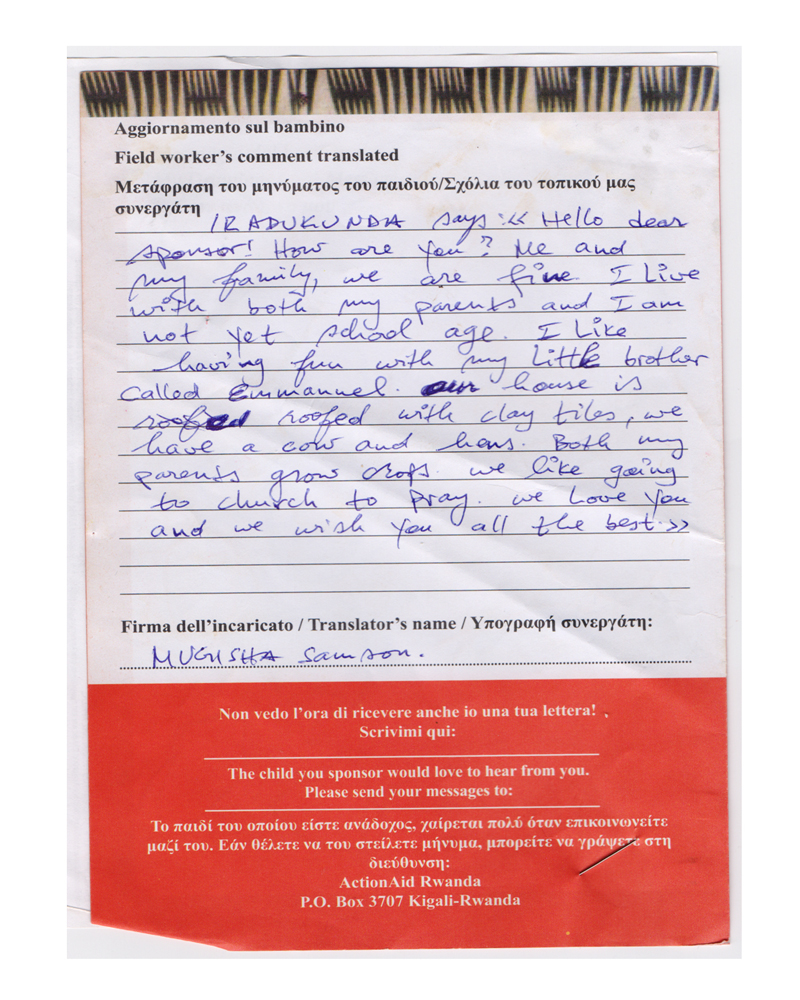 Aggiornamento sul bambino
Field worker's comment translated
Μετάφραση του μηνύματος του παιδιού/Σχόλια του τοπικού μας
συνεργάτη
IRADUKUNDA says :<< Hello dear
sponsor! How are you? Me and
my family, we are fine. I Live
with both my parents and I am
not yet school age. I Like
having fun with my Little brother
Called Emmannuel. our house is
roofed roofed with clay tiles, we
have a cow and hens. Both my
parents grow crops. we like going
to church to pray. we Love you
and we wish you all the best.>>
Firma dell'incaricato / Translator's name / Υπογραφή συνεργάτη:
MUGISHA Samson.
Non vedo l'ora di ricevere anche io una tua lettera!
Scrivimi qui:
The child you sponsor would love to hear from you.
Please send your messages to:
Το παιδί του οποίου είστε ανάδοχος, χαίρεται πολύ όταν επικοινωνείτε
μαζί του. Εάν θέλετε να του στείλετε μήνυμα, μπορείτε να γράψετε στη
διεύθυνση:
ActionAid Rwanda
P.O. Box 3707 Kigali-Rwanda